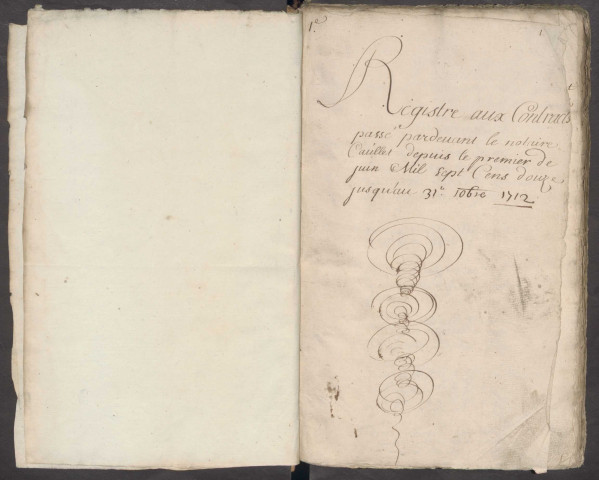 1.e
1
Registre aux Contracts
passé pardeuant le notaire
Caillet depuis le premier de
juin Mil Sept Cens douze
jusqu'au 31e 10bre 1712